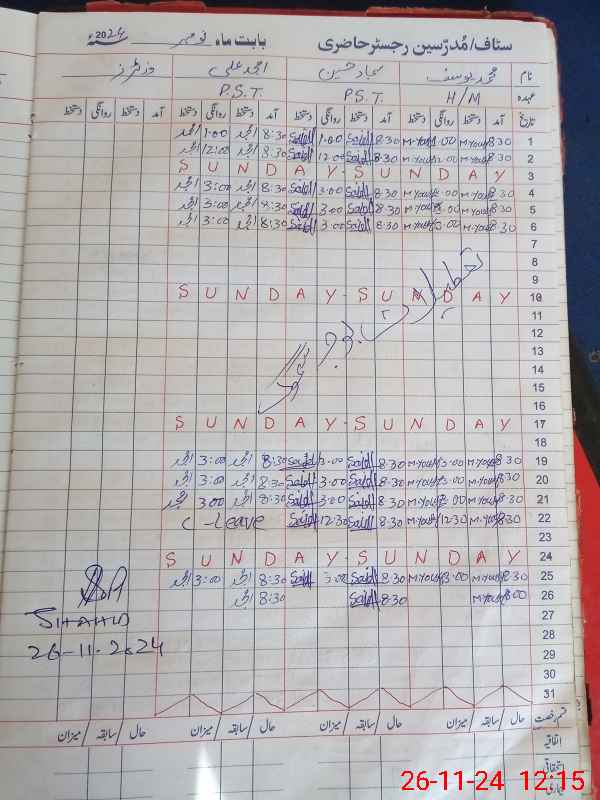 سٹاف/مُدرّسین رجسٹر حاضری بابت ماہ نومبر 2024ء
نام محمد یوسف سجاد حسین امجد علی وزٹرز
عہدہ H/M P.S.T. P.S.T.
تاریخ آمد دستخط روانگی دستخط آمد دستخط روانگی دستخط آمد دستخط روانگی دستخط آمد دستخط روانگی دستخط
1 8:30 M.Yousf 1:00 M.Yousf 8:30 Sajid 1:00 Sajid 8:30 امجد 1:00 امجد
2 8:30 M.Yousf 12:00 M.Yousf 8:30 Sajid 12:00 Sajid 8:30 امجد 12:00 امجد
3 SUNDAY - SUNDAY
4 8:30 M.Yousf 3:00 M.Yousf 8:30 Sajid 3:00 Sajid 8:30 امجد 3:00 امجد
5 8:30 M.Yousf 3:00 M.Yousf 8:30 Sajid 3:00 Sajid 8:30 امجد 3:00 امجد
6 8:30 M.Yousf 3:00 M.Yousf 8:30 Sajid 3:00 Sajid 8:30 امجد 3:00 امجد
7
8
9
10 SUNDAY - SUNDAY
11
12
13
14
15
16
17 SUNDAY - SUNDAY
18
19 8:30 M.Yousf 3:00 M.Yousf 8:30 Sajid 3:00 Sajid 8:30 امجد 3:00 امجد
20 8:30 M.Yousf 3:00 M.Yousf 8:30 Sajid 3:00 Sajid 8:30 امجد 3:00 امجد
21 8:30 M.Yousf 3:00 M.Yousf 8:30 Sajid 3:00 Sajid 8:30 امجد 3:00 امجد
22 8:30 M.Yousf 12:30 M.Yousf 8:30 Sajid 12:30 Sajid C-Leave
23
24 SUNDAY - SUNDAY
25 8:30 M.Yousf 3:00 M.Yousf 8:30 Sajid 3:00 Sajid 8:30 امجد 3:00 امجد
26 8:00 M.Yousf 8:30 Sajid 8:30 امجد
27
28
29
30
31
SHAHID
26-11-2024
قسم رخصت حال / سابقہ / میزان حال / سابقہ / میزان حال / سابقہ / میزان حال / سابقہ / میزان
اتفاقیہ
استحقاقی
بیماری
26-11-24 12:15